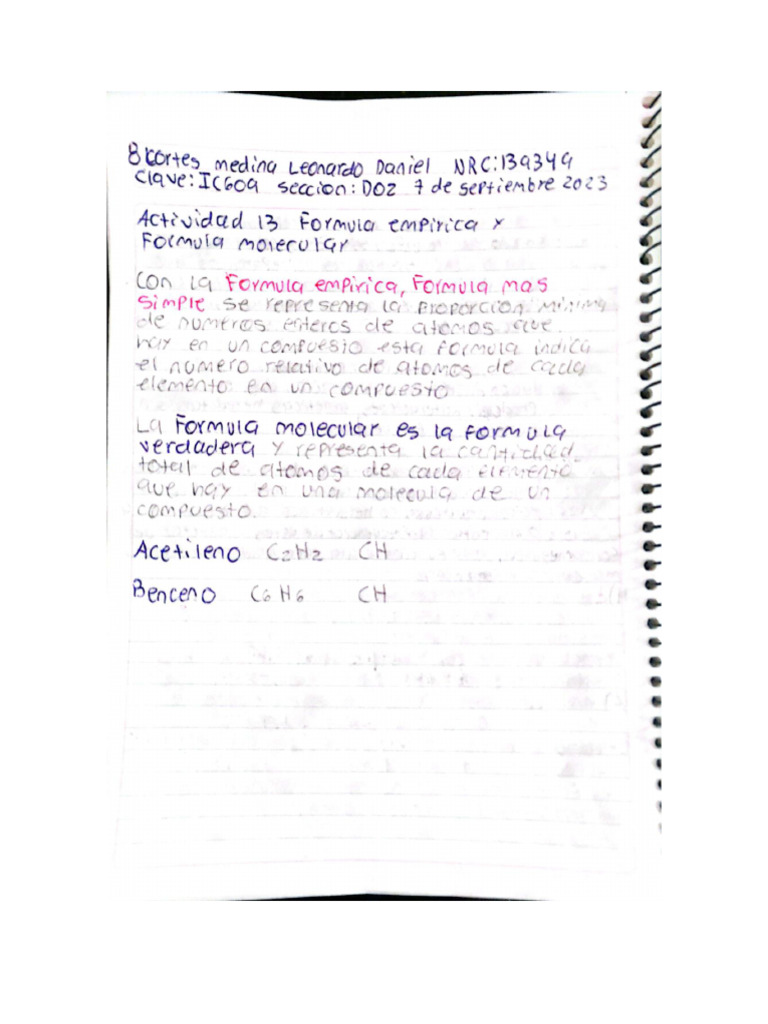 8 Cortes medina Leonardo Daniel NRC:139349
Clave: IC609 seccion: D02 7 de septiembre 2023
Actividad 13 Formula empirica y
Formula molecular
Con la Formula empirica, Formula mas
simple se representa la proporcion minima
de numeros enteros de atomos que
hay en un compuesto esta formula indica
el numero relativo de atomos de cada
elemento en un compuesto
La Formula molecular es la formula
verdadera y representa la cantidad
total de atomos de cada elemento
que hay en una molecula de un
compuesto.
Acetileno C2H2 CH
Benceno C6H6 CH